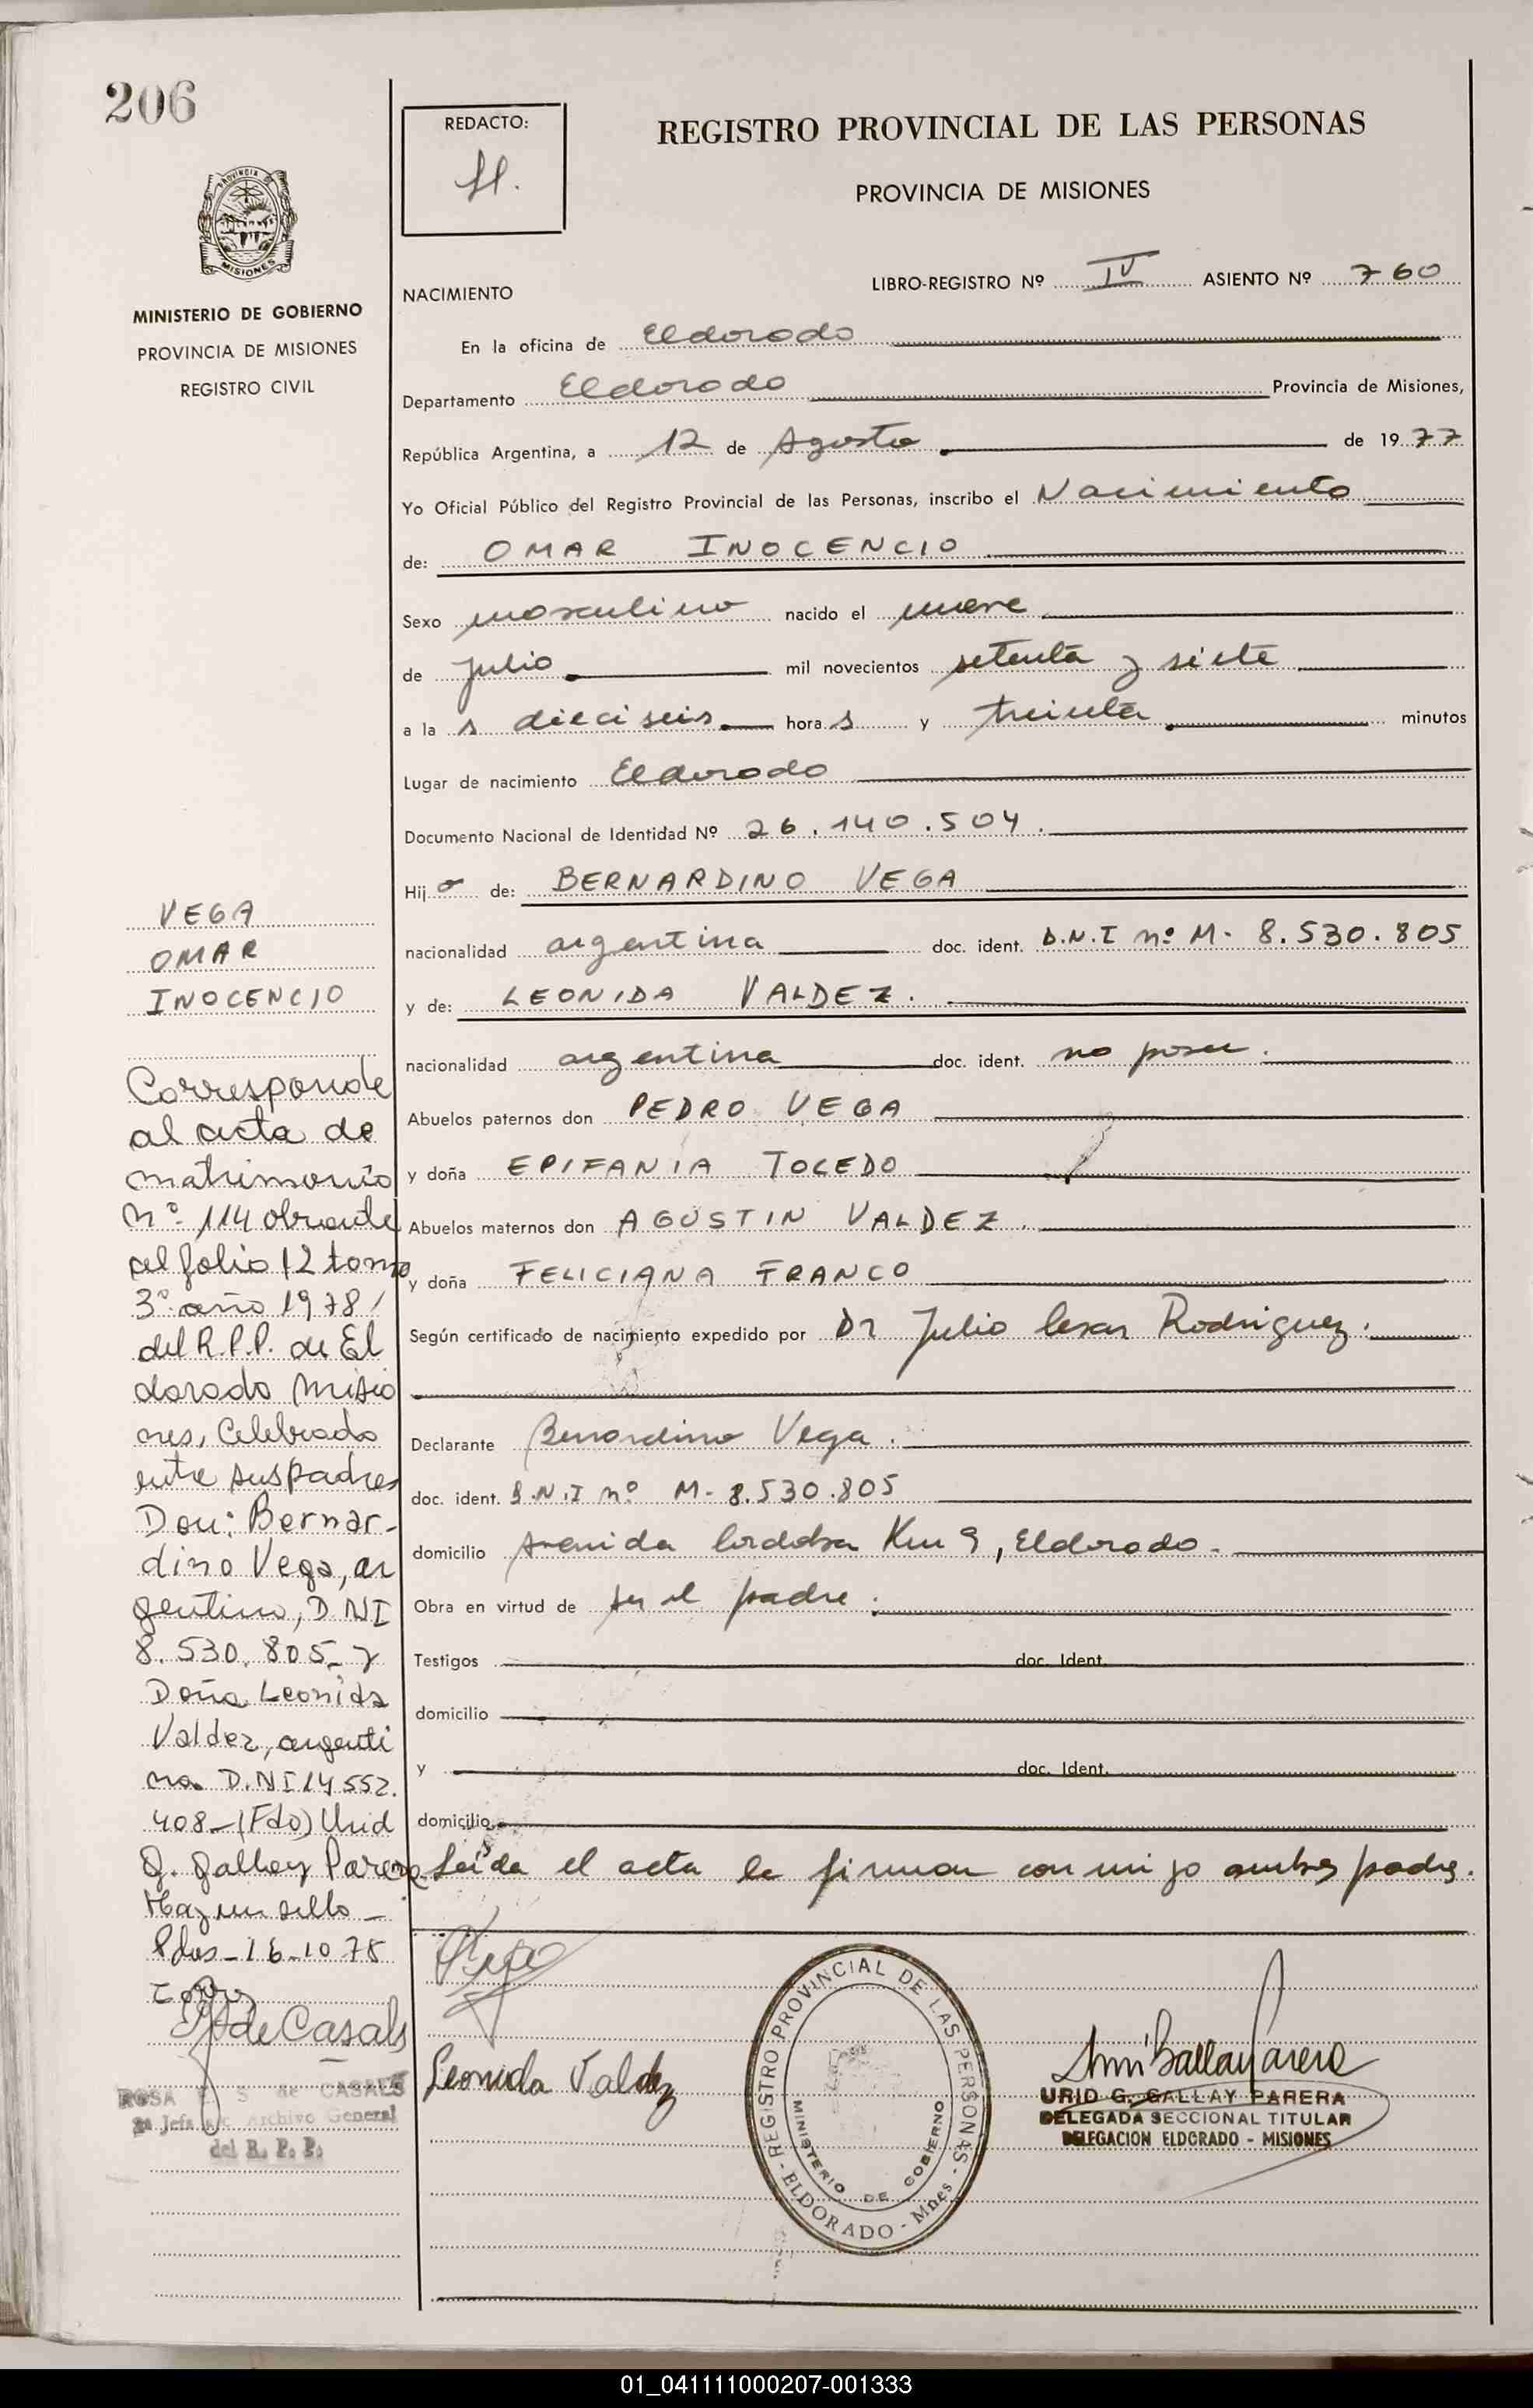 206
REDACTO:
REGISTRO PROVINCIAL DE LAS PERSONAS
PROVINCIA DE MISIONES
PROVINCIA
MISIONES
MINISTERIO DE GOBIERNO
PROVINCIA DE MISIONES
REGISTRO CIVIL
LIBRO-REGISTRO Nº IV ASIENTO Nº 760
NACIMIENTO
En la oficina de Eldorado
Departamento Eldorado Provincia de Misiones,
República Argentina, a 12 de Agosto de 1977
Yo Oficial Público del Registro Provincial de las Personas, inscribo el Nacimiento
de: OMAR INOCENCIO
Sexo masculino nacido el nueve
de Julio mil novecientos setenta y siete
a la s dieciseis hora s y treinta minutos
Lugar de nacimiento Eldorado
Documento Nacional de Identidad Nº 26.140.504.
Hij o de: BERNARDINO VEGA
nacionalidad argentina doc. ident. D.N.I nº M- 8.530.805
y de: LEONIDA VALDEZ.
nacionalidad argentina doc. ident. no posee.
Abuelos paternos don PEDRO VEGA
y doña EPIFANIA TOLEDO
Abuelos maternos don AGUSTIN VALDEZ.
y doña FELICIANA FRANCO
Según certificado de nacimiento expedido por Dr Julio Cesar Rodriguez.
Declarante Bernardino Vega.
doc. ident. D.N.I nº M- 8.530.805
domicilio Avenida Cordoba Km 9, Eldorado.
Obra en virtud de ser el padre.
Testigos doc. Ident.
domicilio
y doc. Ident.
domicilio
Leida el acta la firman conmigo ambos padres.
Leonida Valdez
REGISTRO PROVINCIAL DE LAS PERSONAS - ELDORADO - Mnes -
MINISTERIO DE GOBIERNO
URID G. GALLAY PARERA
DELEGADA SECCIONAL TITULAR
DELEGACION ELDORADO - MISIONES
VEGA
OMAR
INOCENCIO
Corresponde
al acta de
matrimonio
nº 114 obrante
al folio 12 tomo
3º año 1978/
del R.P.P. de El
dorado Misio
nes, Celebrado
entre sus padres
Don: Bernar-
dino Vega, ar
gentino, D NI
8.530.805 y
Doña Leonida
Valdez, argenti
na D.NI 14 552.
408-(Fdo) Urid
G. Gallay Parera
Hay un sello -
Pdas-16-10-78
de Casals
ROSA E. S. de CASALS
2a Jefa a/c Archivo General
del R. P. P.
01_041111000207-001333